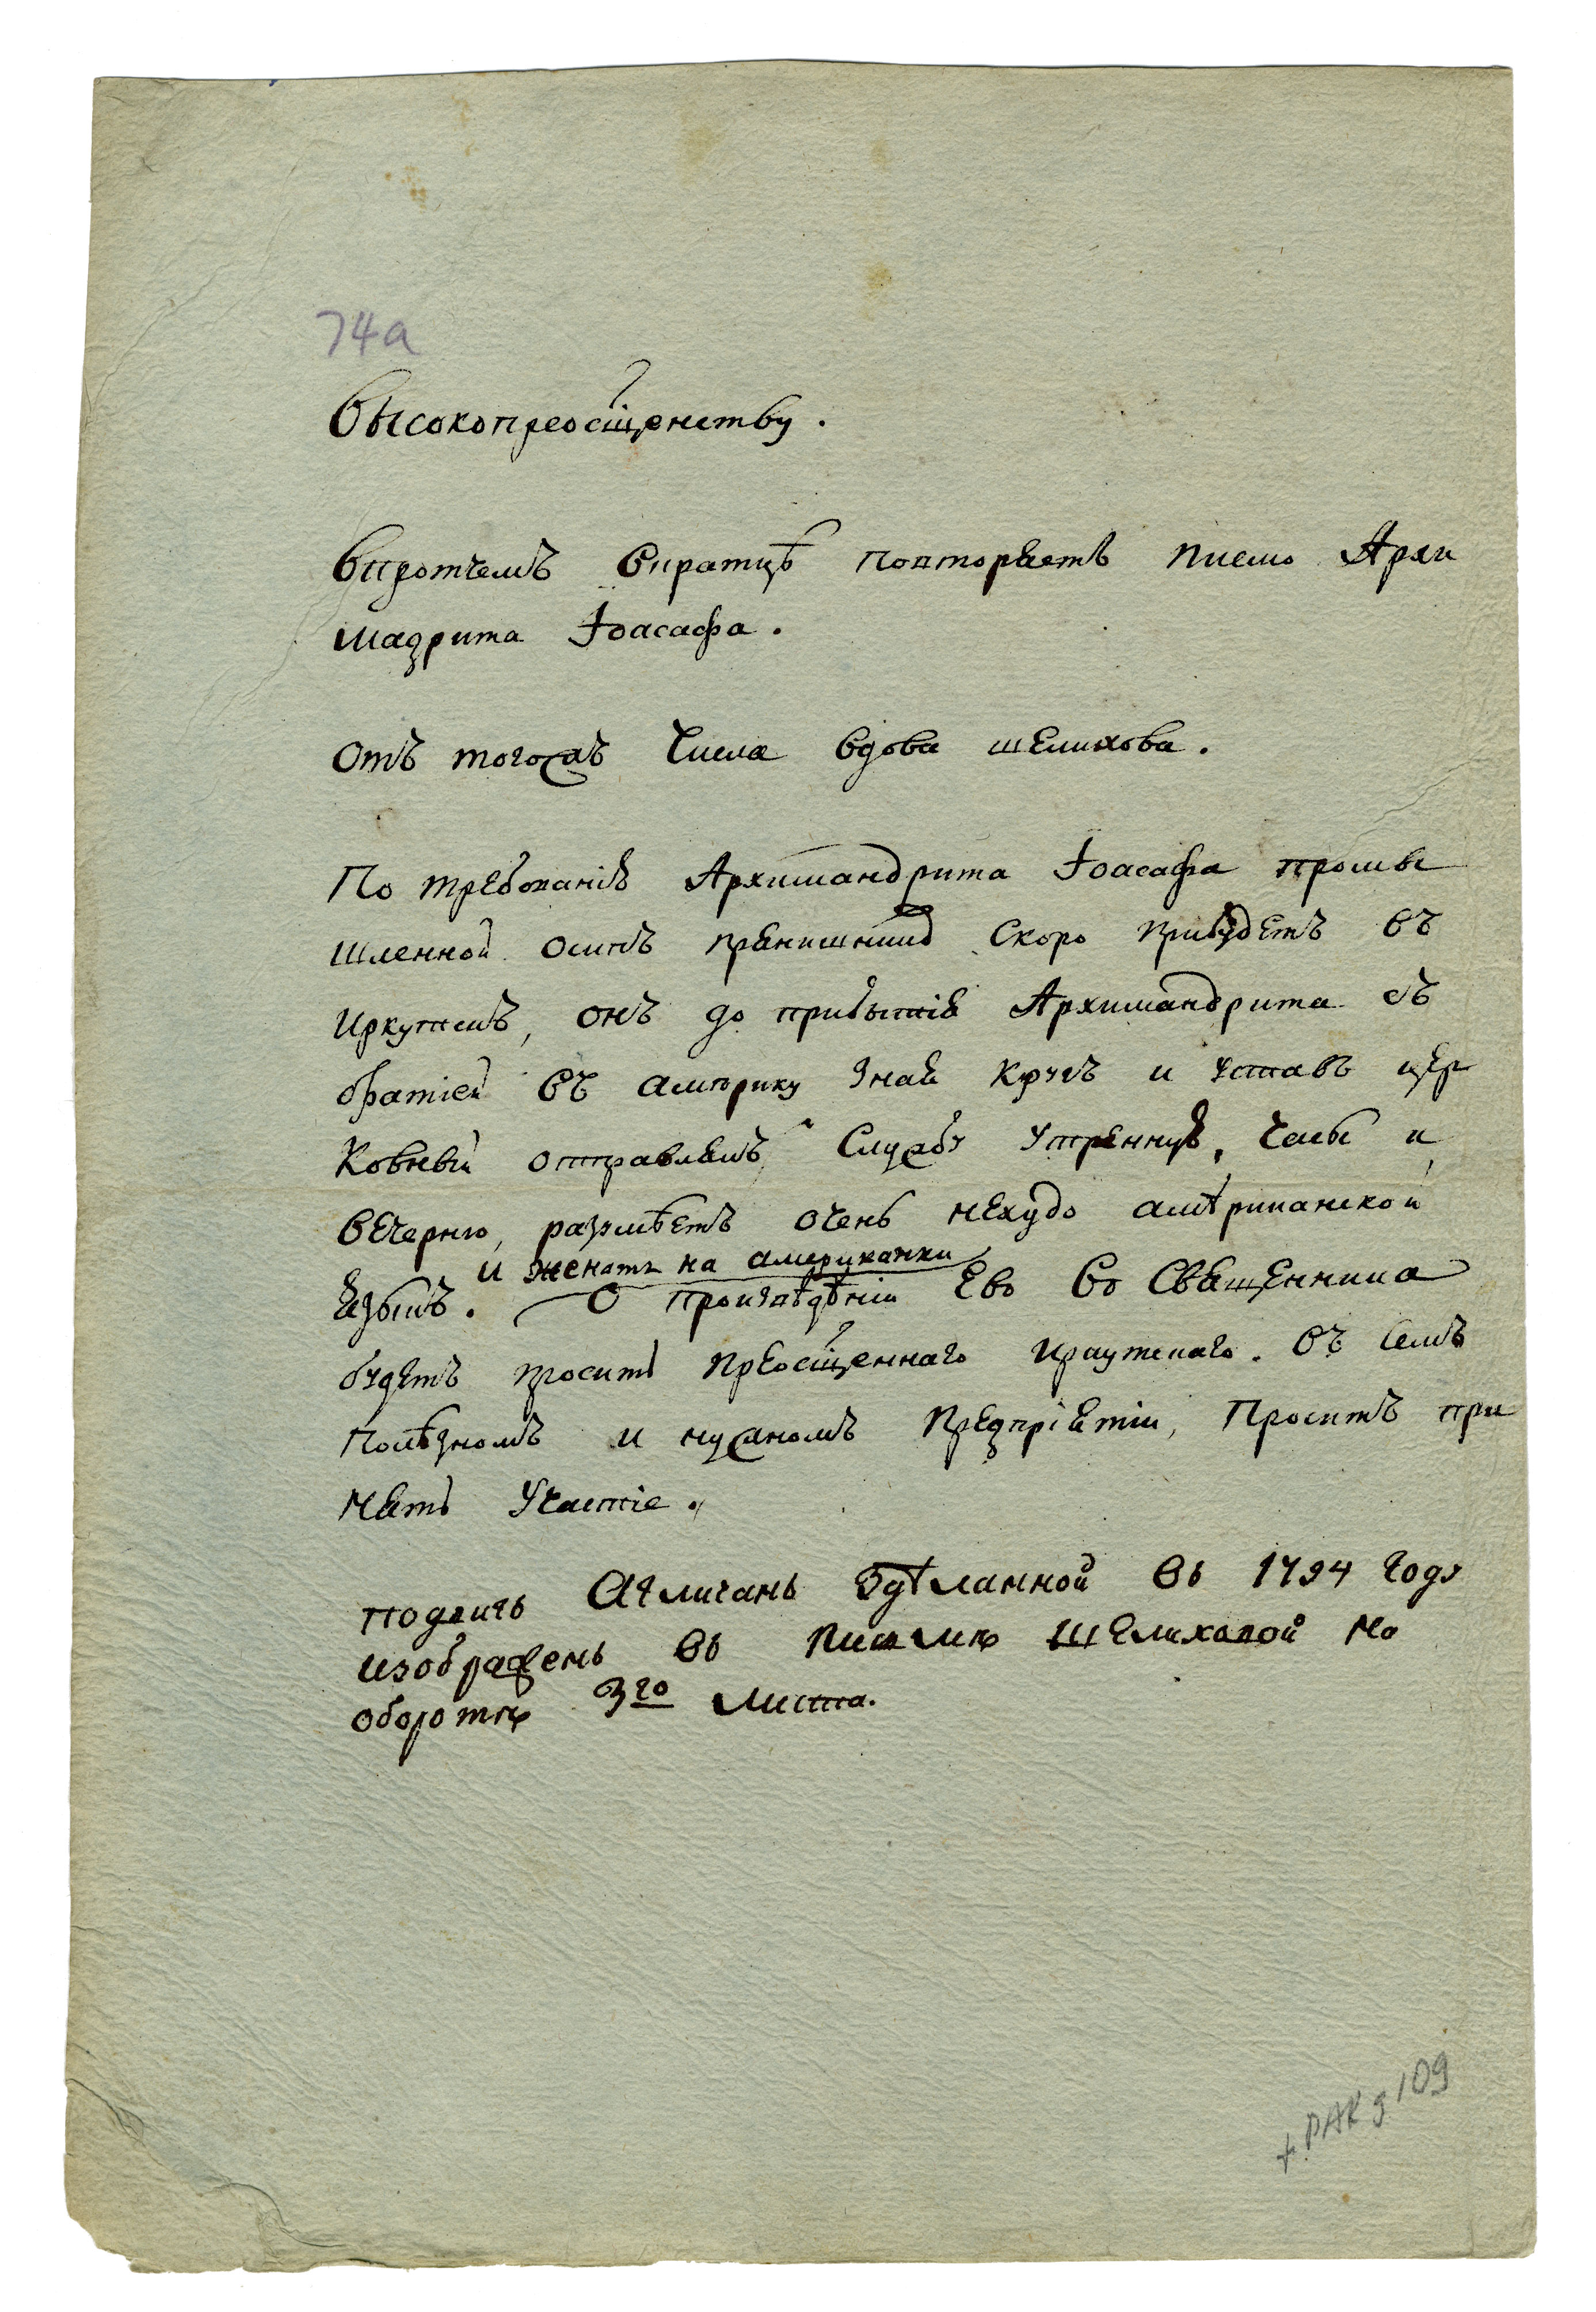 74а
Высокопреосщенству.
Впротчемъ вкратцѣ повторяетъ писмо Архи
мадрита Іоасафа.
Отъ тогожъ числа вдова шелихова.
По требованію Архимандрита Іоасафа промы
шленной осипъ прянишниковъ скоро прибудетъ въ
Иркутскъ, онъ до прибытія Архимандрита съ
братіей въ америку зная кругъ и уставъ цер
ковный отправлялъ службу утреннюю, часы и
вечерню, разумѣетъ очень нехудо американской
языкъ. и женатъ на американки О произвѣдѣніи ево во священника
будетъ просить преосщеннаго иркутскаго. въ семъ
полѣзномъ и нужномъ предпріятіи, проситъ при
нять участіе.
подвигъ Агличанъ здѣланной въ 1794 году
изображенъ въ писмѣ шелиховой на
оборотѣ 3го листа.
+ РАК 9 109